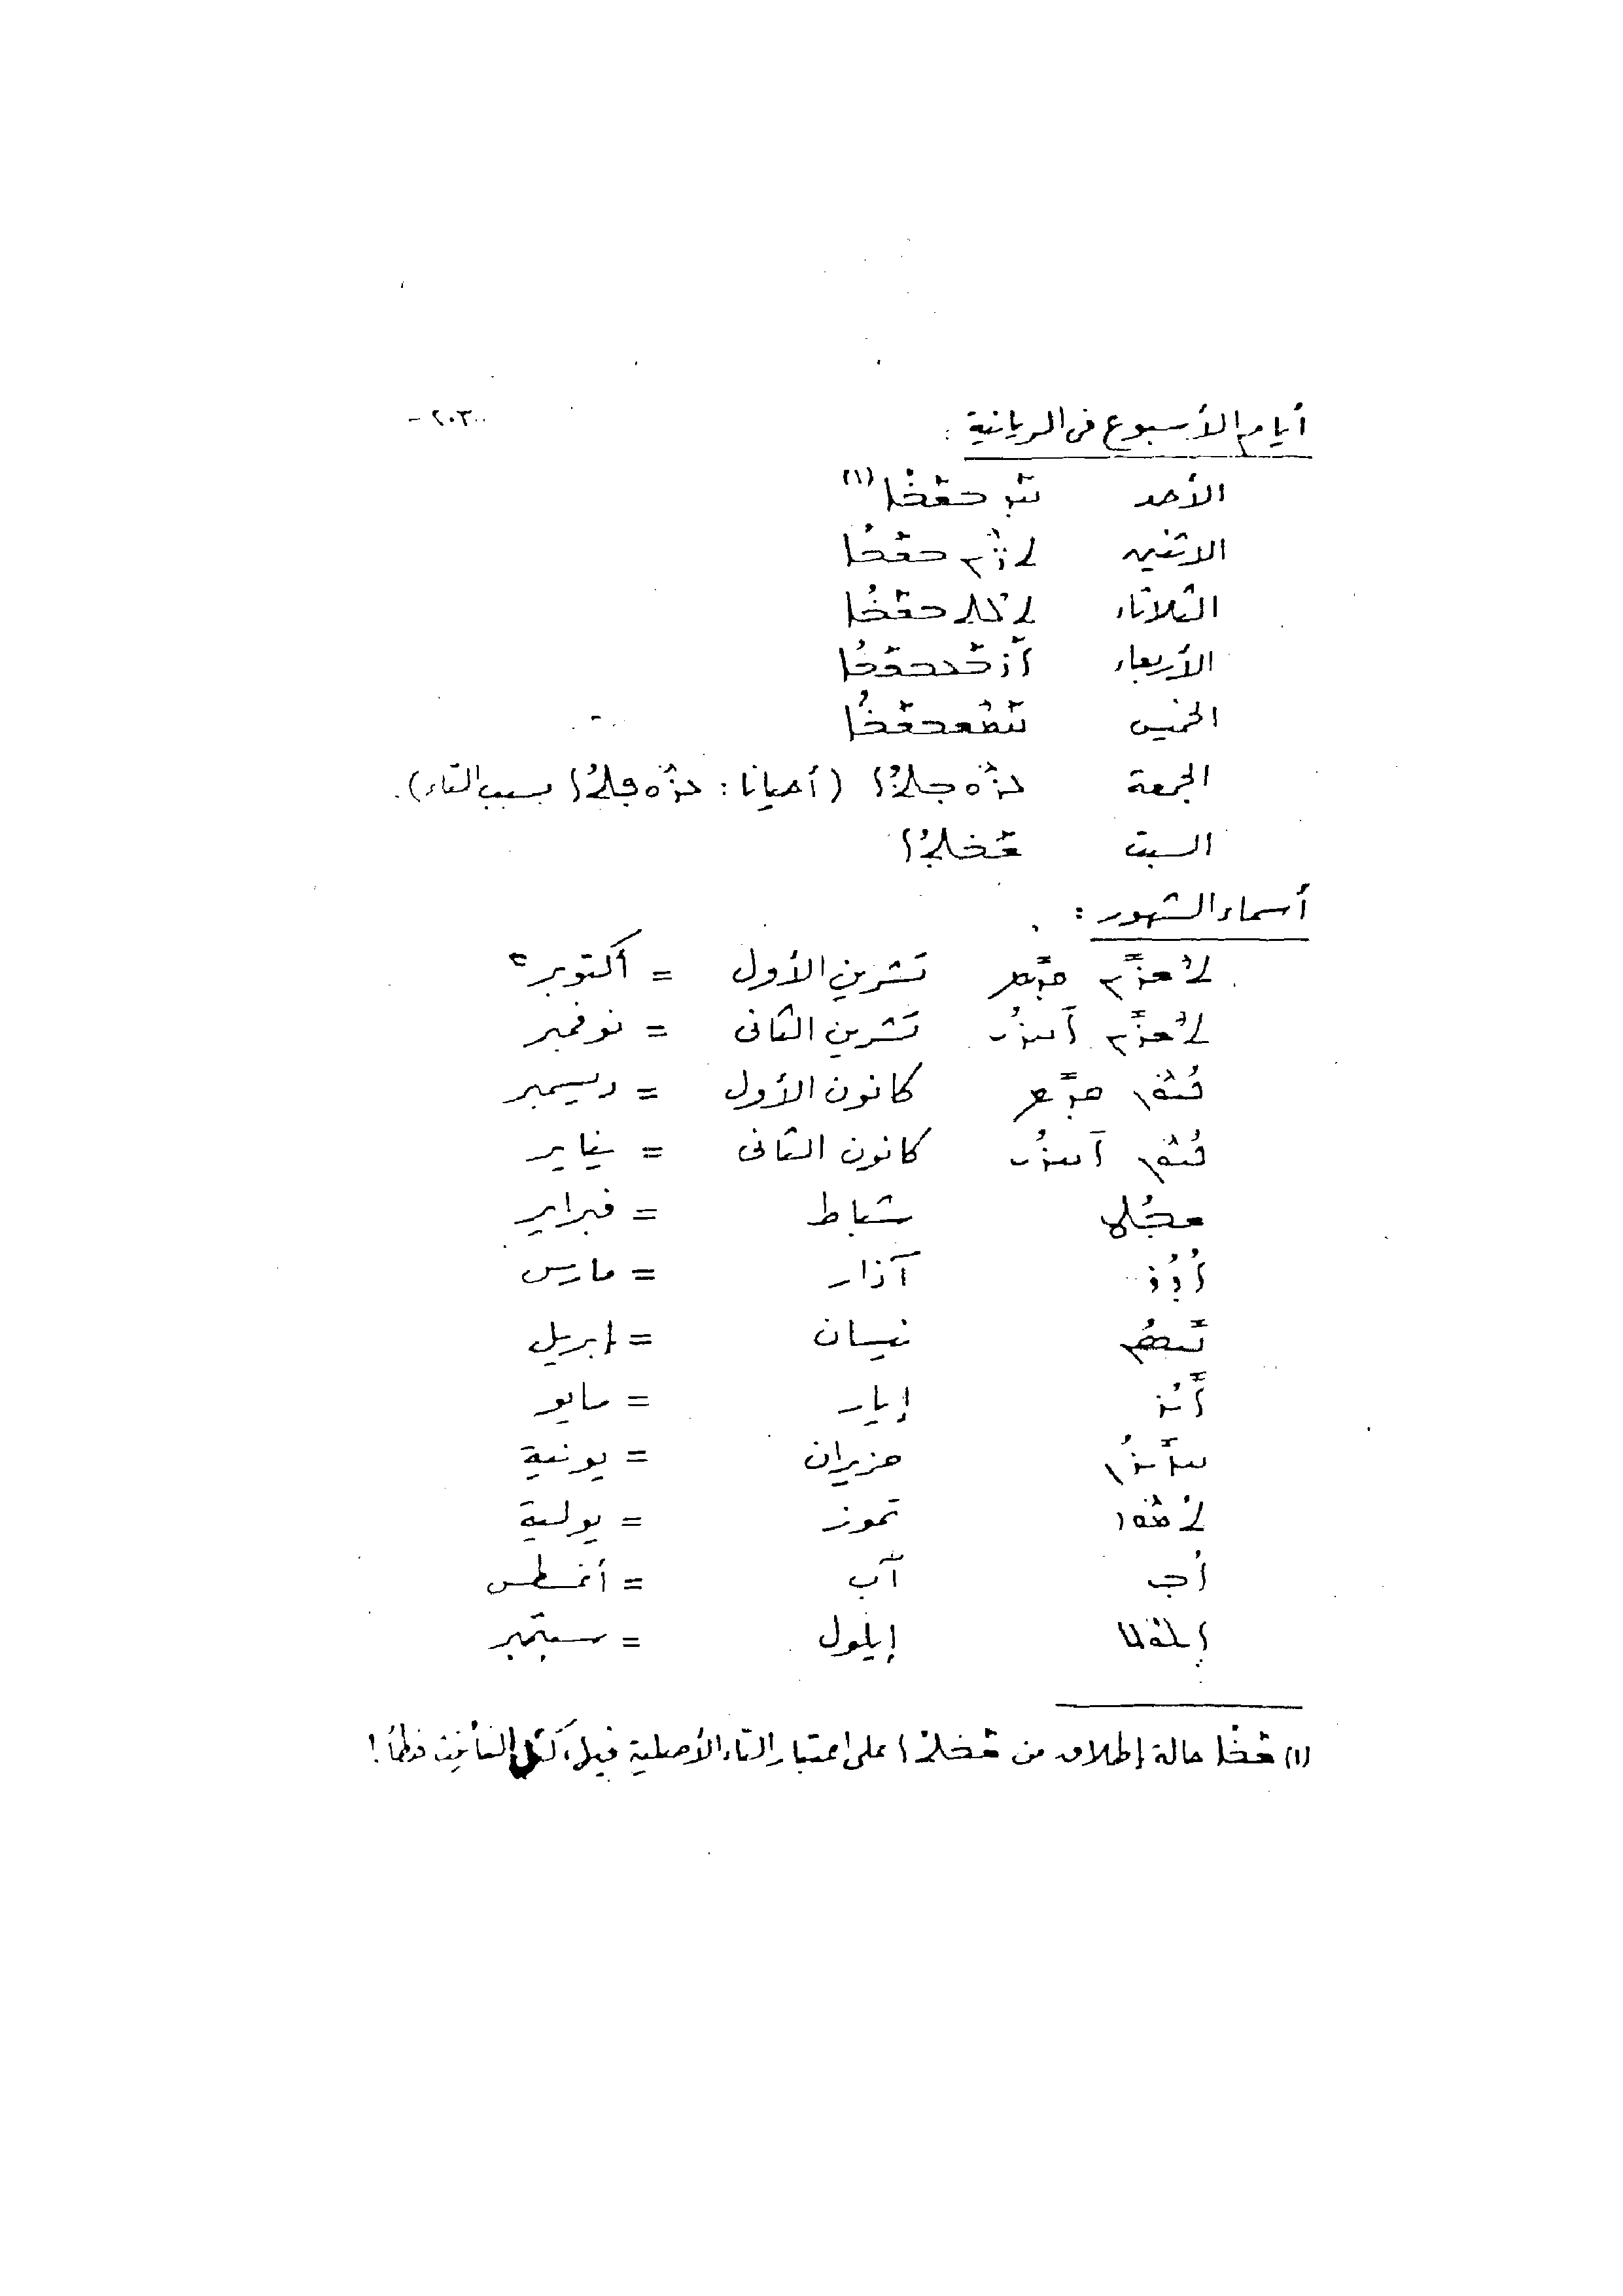 أيام الأسبوع في السريانية : -٢٠٣-
الأحد ܚܰܕ ܒܫܰܒܳܐ (١)
الاثنين ܬܪܶܝܢ ܒܫܰܒܳܐ
الثلاثاء ܬܠܳܬ ܒܫܰܒܳܐ
الأربعاء ܐܰܪܒܰܥܒܫܰܒܳܐ
الخميس ܚܰܡܶܫܒܫܰܒܳܐ
الجمعة ܥܪܽܘܒܬܳܐ (أحيانا : ܥܪܽܘܒܬܳܐ بسبب التاء).
السبت ܫܰܒܬܳܐ
أسماء الشهور :
ܬܶܫܪܺܝܢ ܩܕܺܝܡ تشرين الأول = أكتوبر
ܬܶܫܪܺܝܢ ܐܰܚܪܳܝ تشرين الثانى = نوفمبر
ܟܳܢܽܘܢ ܩܕܺܝܡ كانون الأول = ديسمبر
ܟܳܢܽܘܢ ܐܰܚܪܳܝ كانون الثانى = يناير
ܫܒܳܛ شباط = فبراير
ܐܳܕܳܪ آذار = مارس
ܢܺܝܣܳܢ نيسان = إبريل
ܐܺܝܳܪ إيار = مايو
ܚܙܺܝܪܳܢ حزيران = يونية
ܬܳܡܽܘܙ تموز = يولية
ܐܳܒ آب = أغسطس
ܐܺܝܠܽܘܠ إيلول = سبتمبر
(١) ܫܰܒܳܐ حالة إطلاق من ܫܰܒܬܳܐ على اعتبار التاء الأصلية فيها، كتاء التأنيث خطأ!